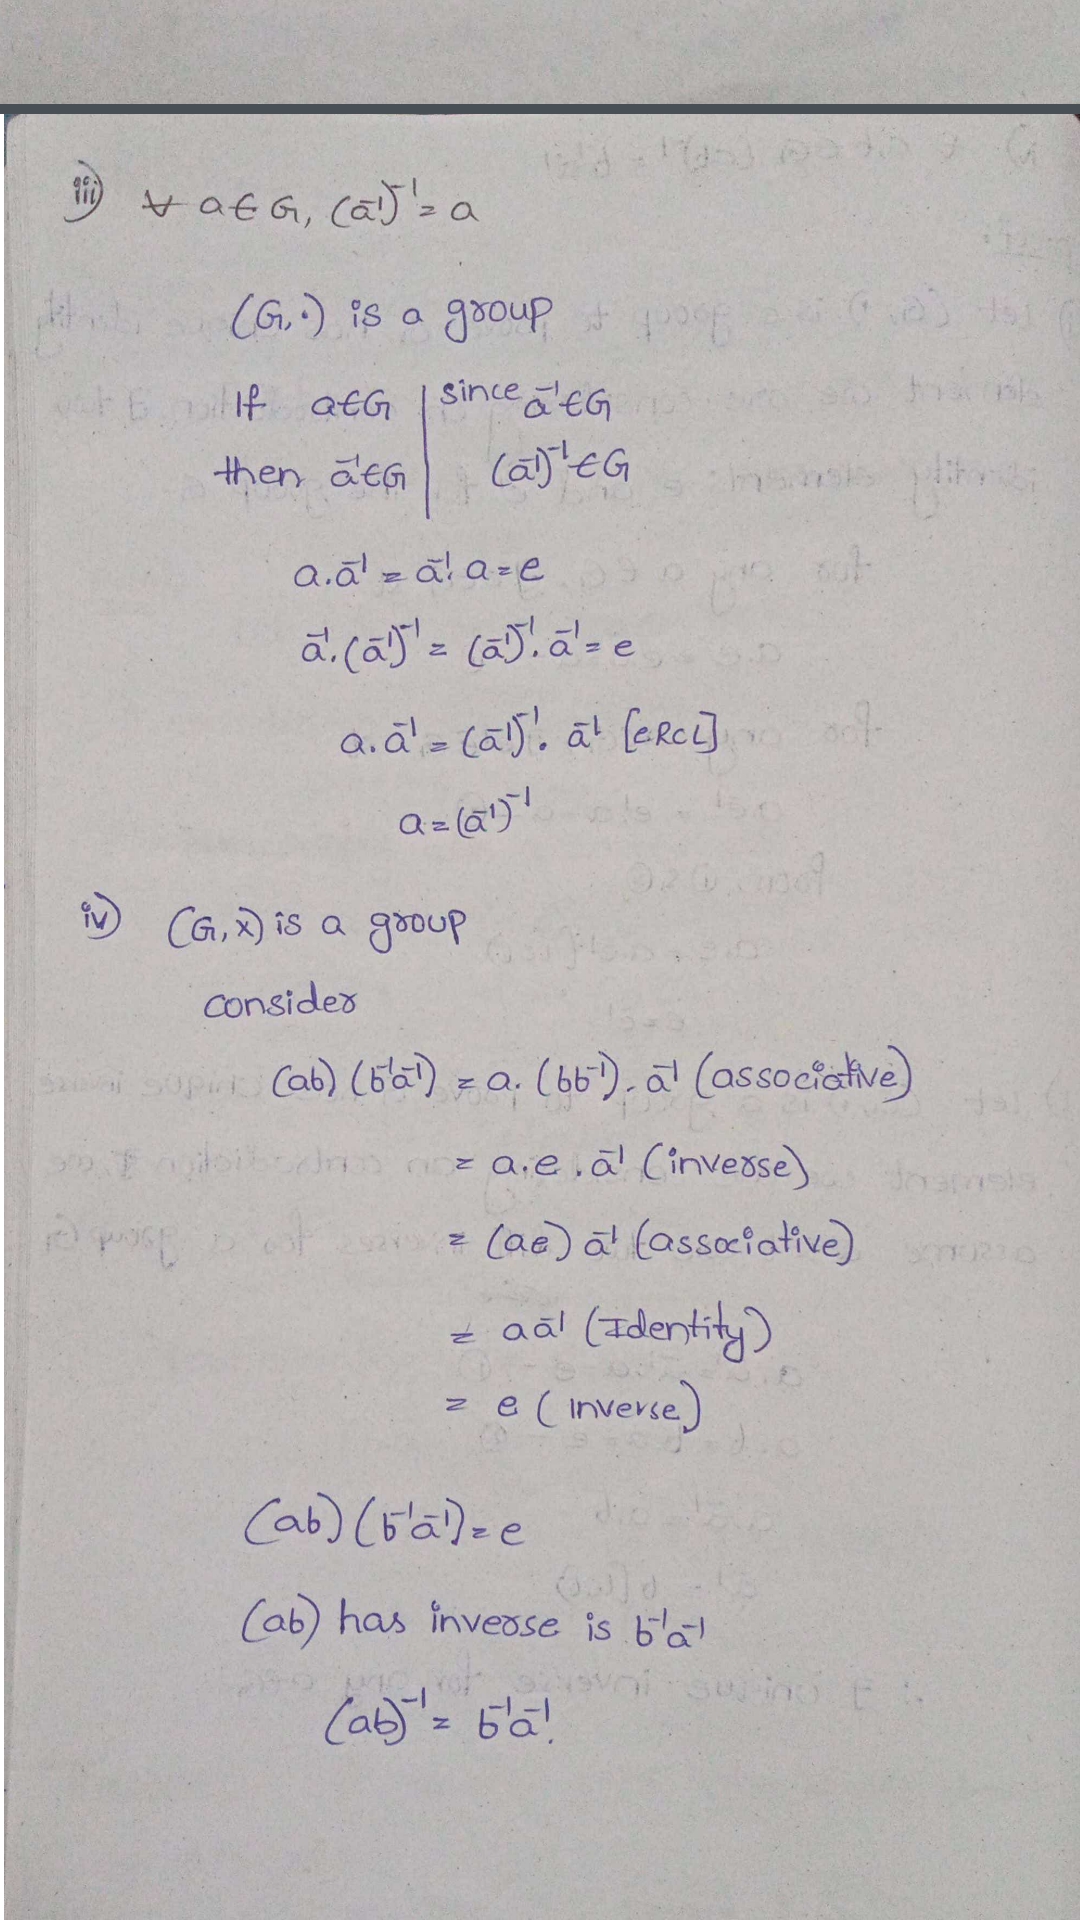 iii) ∀ a∈G, (a⁻¹)⁻¹ = a
(G,·) is a group
If a∈G | since a⁻¹∈G
then a⁻¹∈G | (a⁻¹)⁻¹∈G
a.a⁻¹ = a⁻¹.a = e
a⁻¹.(a⁻¹)⁻¹ = (a⁻¹)⁻¹.a⁻¹ = e
a.a⁻¹ = (a⁻¹)⁻¹. a⁻¹ [eRCL]
a = (a⁻¹)⁻¹
iv) (G,x) is a group
consider
(ab) (b⁻¹a⁻¹) = a. (bb⁻¹). a⁻¹ (associative)
= a.e.a⁻¹ (inverse)
= (ae) a⁻¹ (associative)
= aa⁻¹ (Identity)
= e (inverse)
(ab) (b⁻¹a⁻¹) = e
(ab) has inverse is b⁻¹a⁻¹
(ab)⁻¹ = b⁻¹a⁻¹.